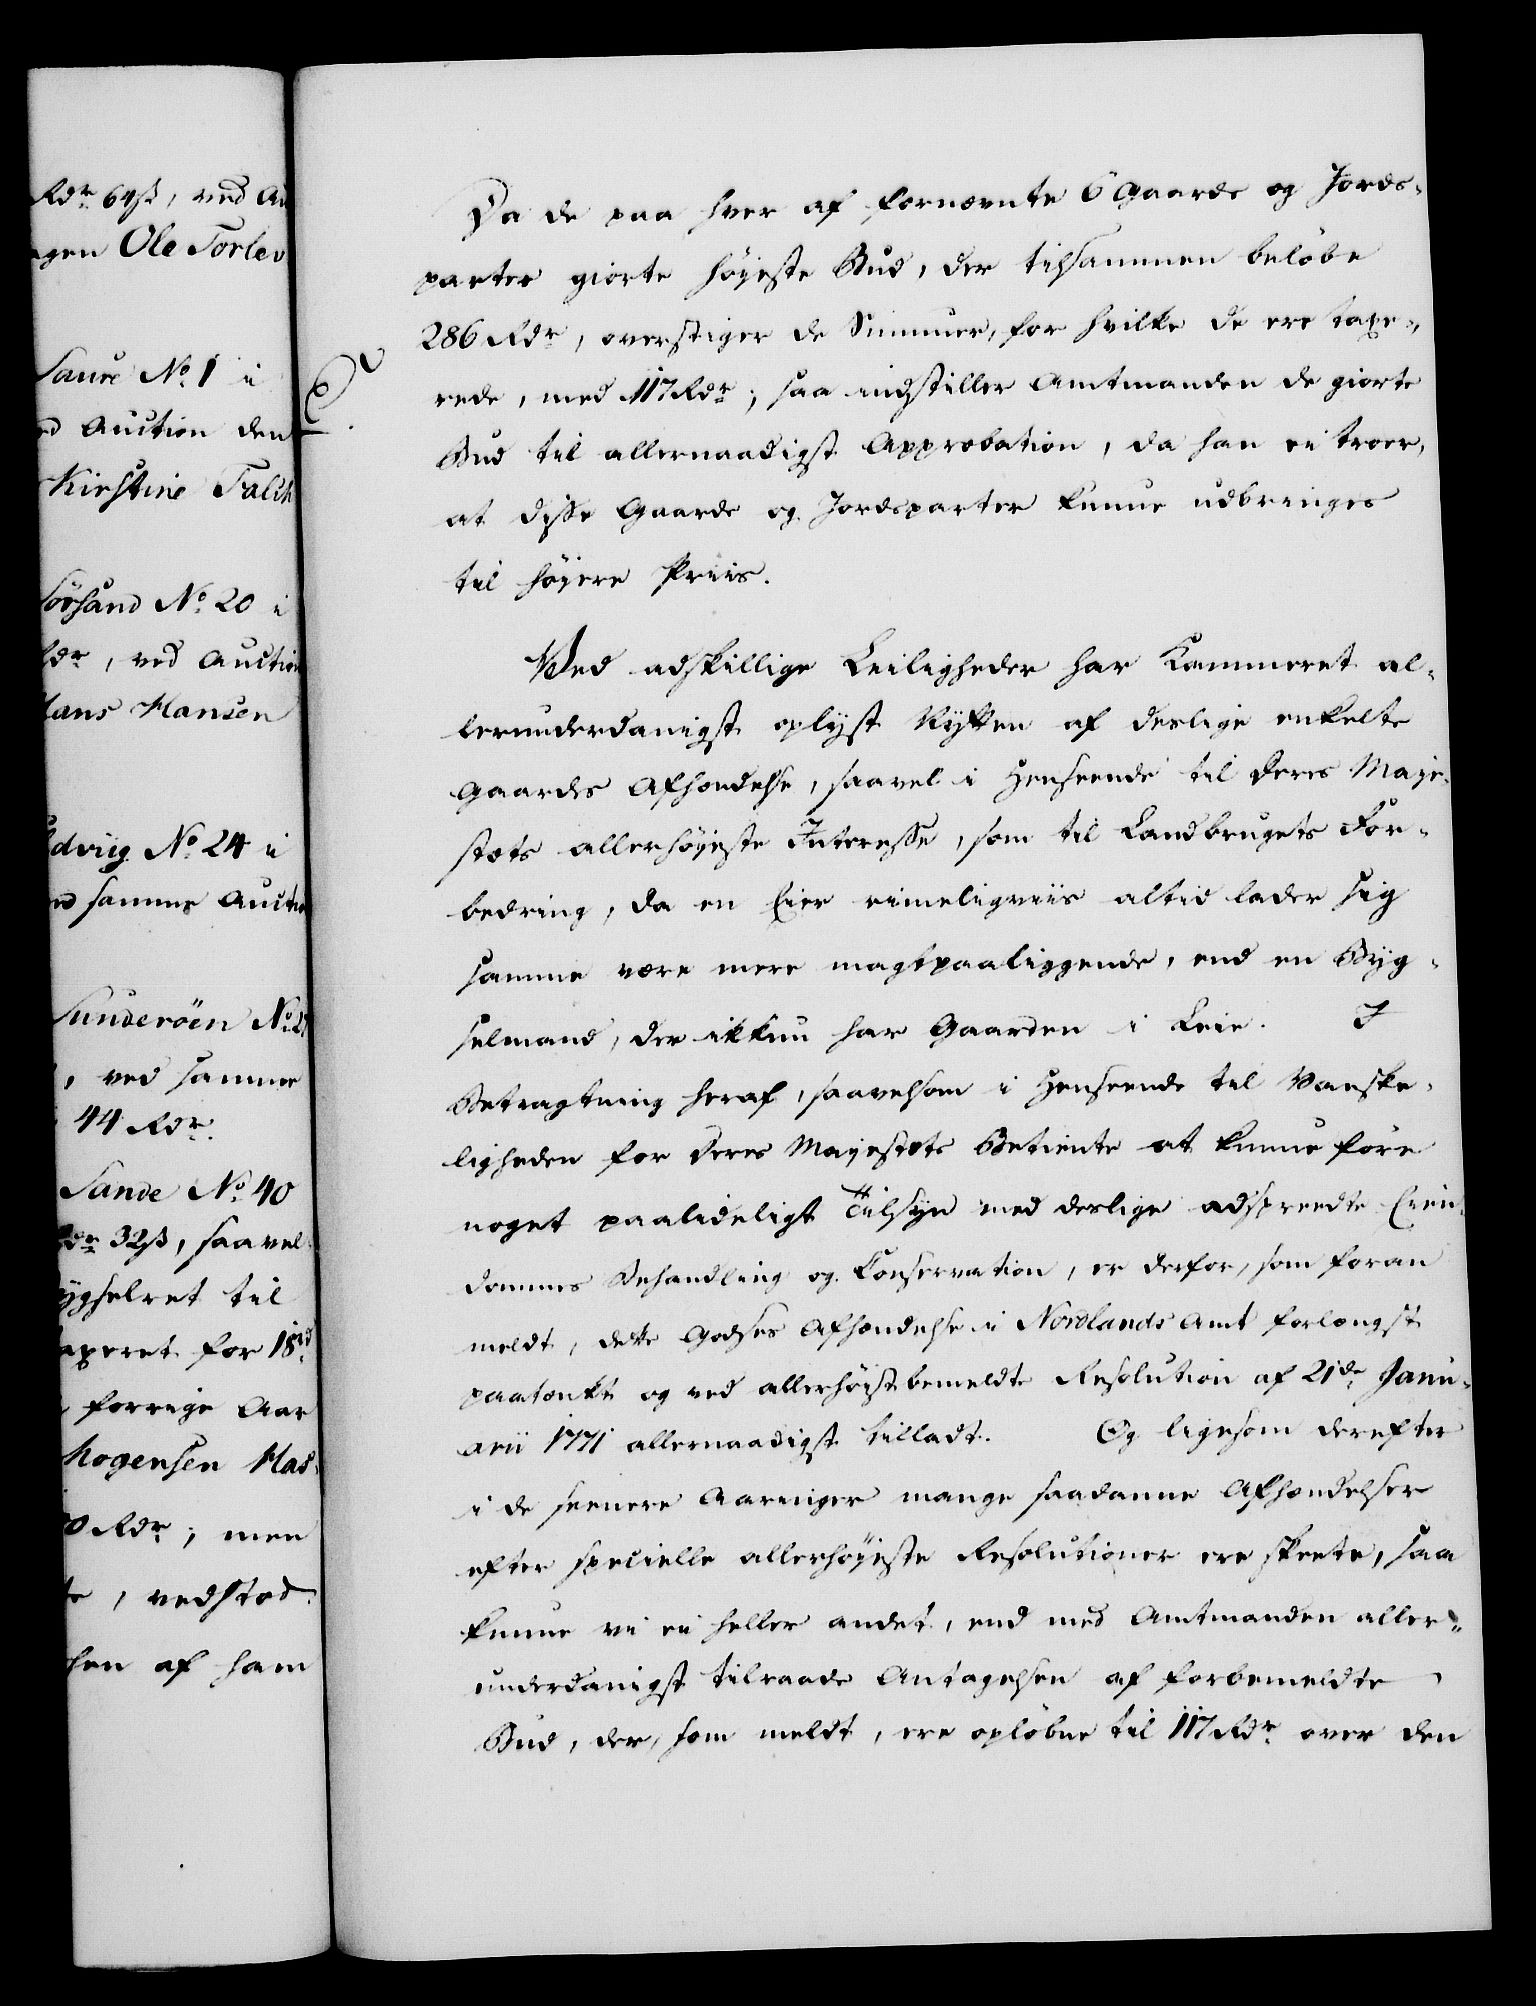 Rdr 64ß, ved Au
gen Ole Torlev
Saure No. 1 i
d Auction den
Kirstine Falch
No. 20 i
dr, ved Auction
Hans Hansen
No. 24 i
samme Auction
Sunderöen No.
, ved samme
44 Rdr.
Sande No. 40
dr 32ß, saavel
ygselret til
axeret for 18
forrige Aar
Mogensen
0 Rdr; men
, vedstod
af ham
Da de paa hver af fornævnte 6 Gaarde og Jords-
parter giorte høyeste Bud, der tilsammen beløbe
286 Rdr, overstiger de Summer, for hvilke de ere taxe-
rede, med 117 Rdr; saa indstiller Amtmanden de giorte
Bud til allernaadigst Approbation, da han ei troer,
at disse Gaarde og Jordsparter kunne udbringes
til høyere Priis.
Ved adskillige Leiligheder har Kammeret al-
lerunderdanigst oplyst Nytten af deslige enkelte
Gaardes Afhændelse, saavel i Henseende til Deres Maje-
stæts allerhøyeste Interesse, som til Landbrugets For-
bedring, da en Eier rimeligviis altid lader sig
samme være mere magtpaaliggende, end en Byg-
selmand, der ikkun har Gaarden i Leie. I
Betragtning heraf, saavelsom i Henseende til Vanske-
ligheden for Deres Majestæts Betiente at kunne føre
noget paalideligt Tilsyn med deslige adspreedte Eien-
domms Behandling og Conservation, er derfor, som foran
meldt, dette Godses Afhændelse i Nordlands Amt forlængst
paatænkt og ved allerhøystbemeldte Resolution af 21de Janu-
arii 1771 allernaadigst tilladt. Og ligesom derefter
i de seenere Aaringer mange saadanne Afhændelser
efter specielle allerhøyeste Resolutioner ere skeete, saa
kunne vi ei heller andet, end med Amtmanden aller-
underdanigst tilraade Antagelsen af forbemeldte
Bud, der, som meldt, ere opløbne til 117 Rdr over den